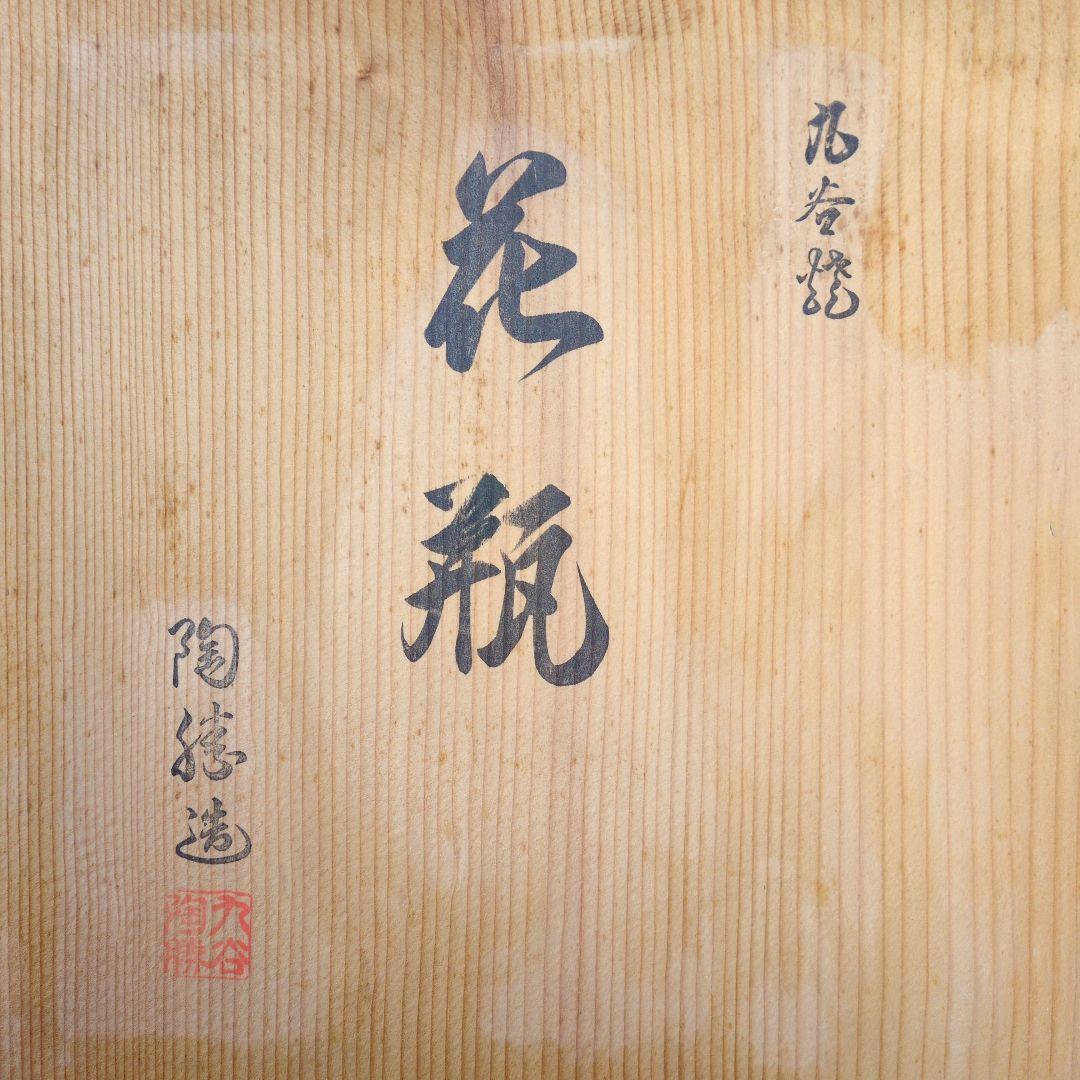 九谷焼
花瓶
陶勝造
九谷
陶勝